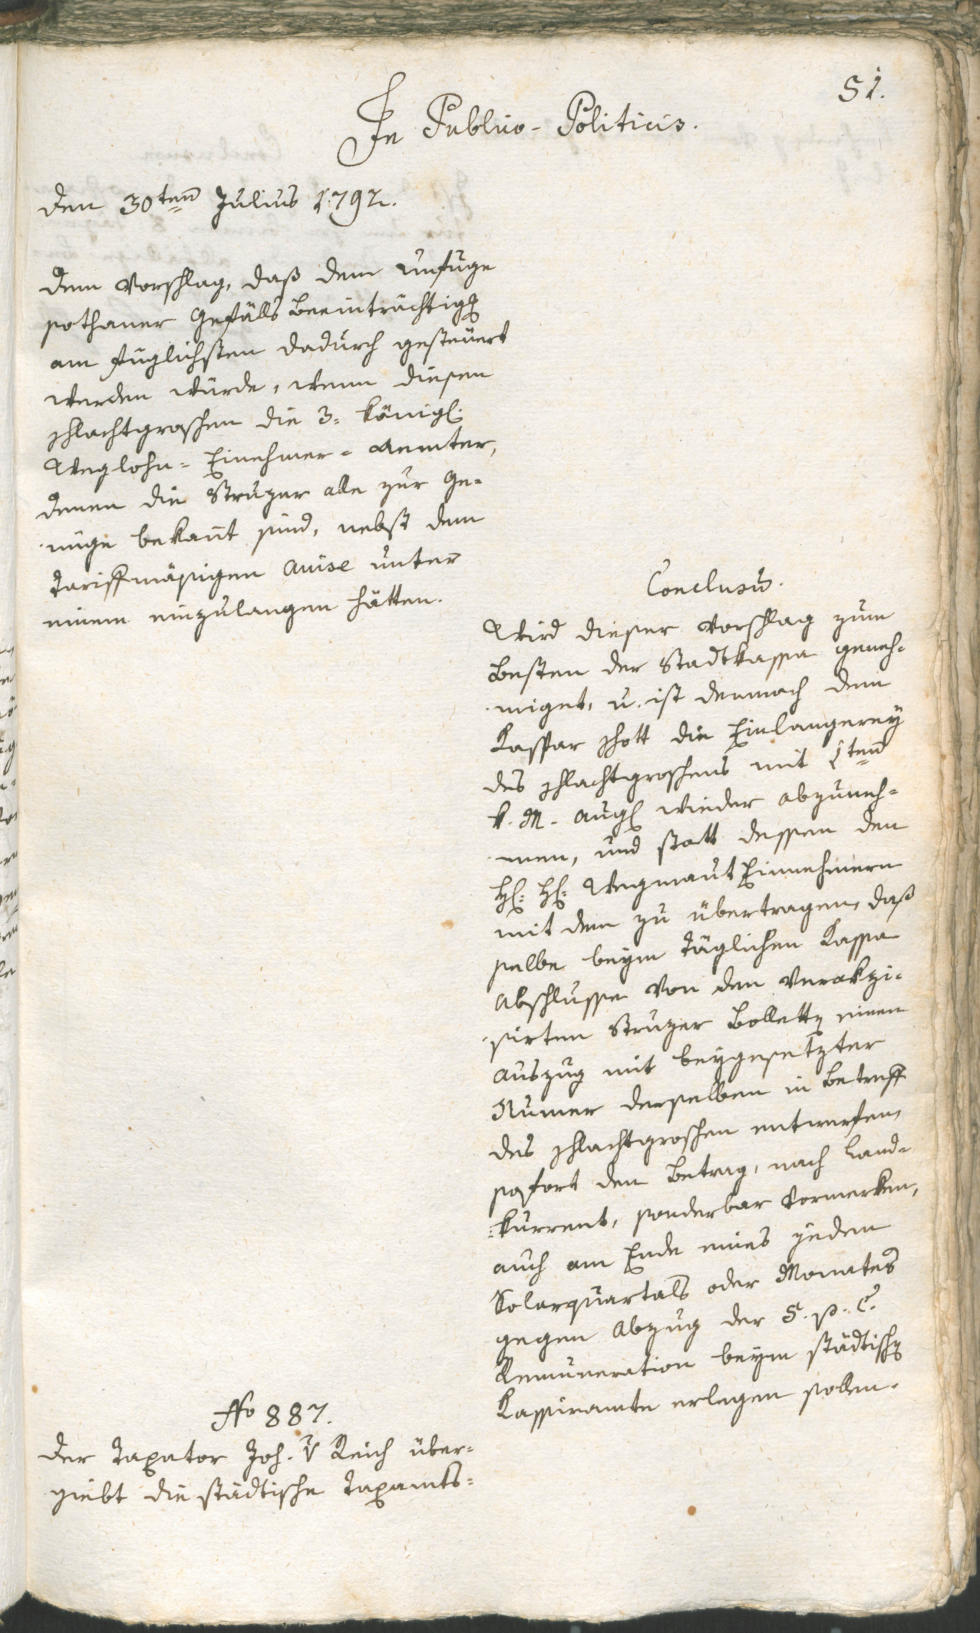 51.
In Publico-Politicis.
den 30ten Julius 1792.
dem Vorschlag, daß dem Unfuge
sothaner Gefälls Beeinträchtig
am füglichsten dadurch gesteuert
werden würde, wenn diesen
schlachtgroschen die 3. königl:
Weglohn-Einehmer-Aemter,
denen die Struzer alle zur Ge-
nüge bekant sind, nebst dem
tariffmäsigen Avise unter
einem einzulangen hätten.
Conclusum.
Wird dieser Vorschlag zum
Besten der Stadtkassa geneh-
miget, u. ist demnach dem
Kaspar schott die Einlangerey
des schlachtgroschens mit ten
k. M. Aug wieder abzuneh-
men, und statt dessen den
H: H: Wegmaut Einnehmern
mit dem zu übertragen, daß
selbe beym täglichen Kassa
Abschlusse von den Verakzi-
sirten Struzer Bollett einen
Auszug mit beygesetzter
Numer derselben in Betreff
des schlachtgroschen entwerfen,
sofort den Betrag, nach Land-
kurrent, sonderbar Vormerken,
auch am Ende eines jeden
Solarquartals oder Monates
gegen Abzug der 5. p. C.
Remuneration beym städtisch
Kassiramte erlegen sollen.
No 887.
Der Taxator Joh. V Reich über-
giebt die städtische Taxamts-